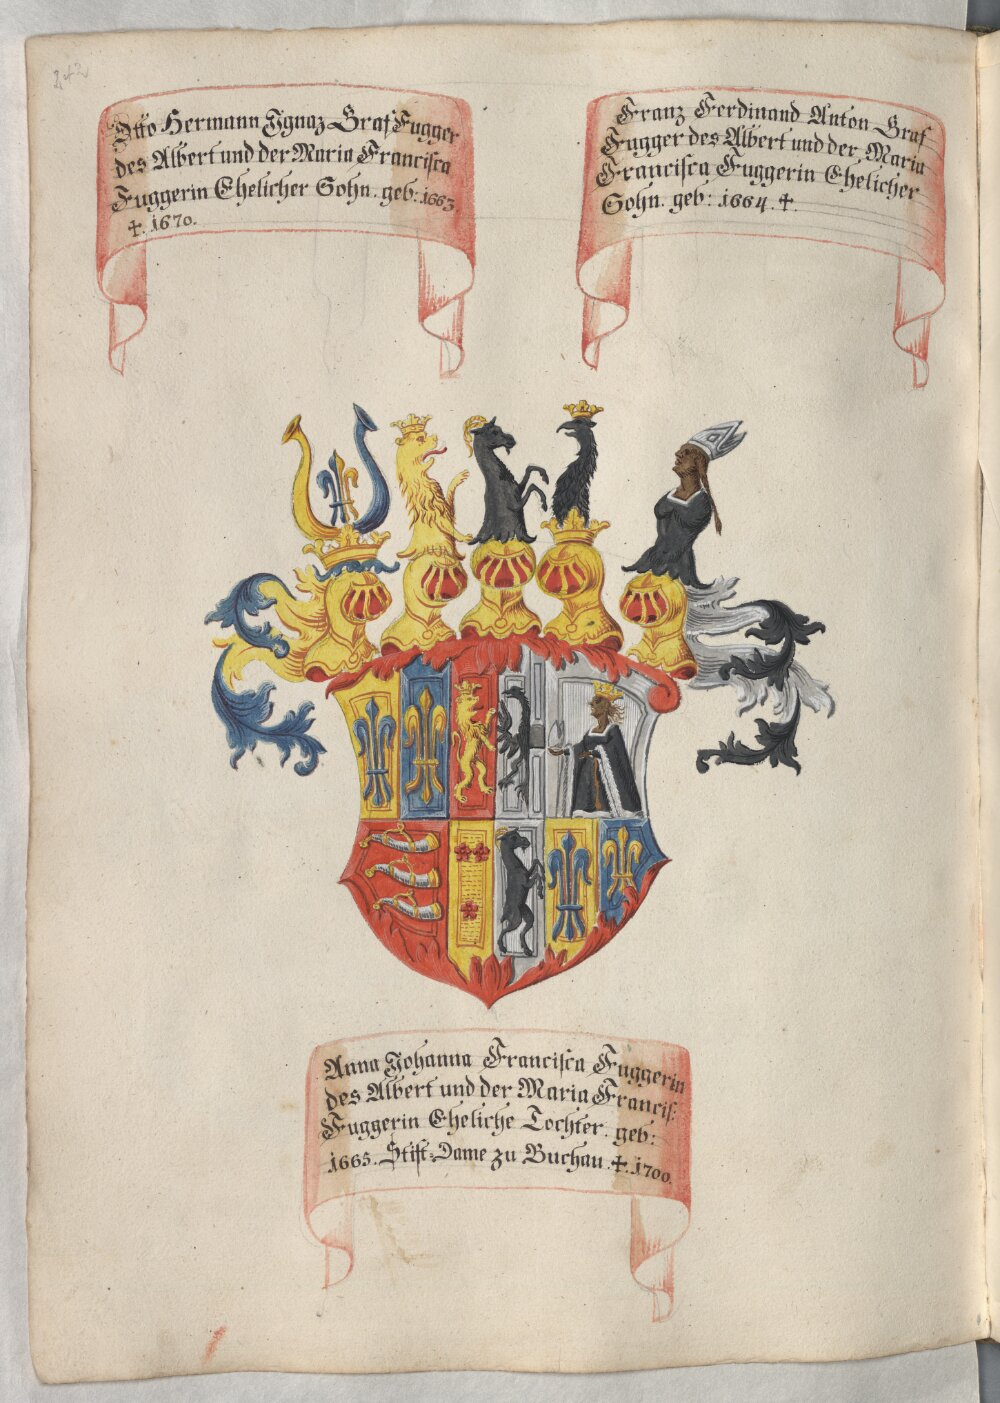 242
Otto Hermann Ignaz Graf Fugger
des Albert und der Maria Francisca
Fuggerin Ehelicher Sohn. geb: 1663
✝. 1670.
Franz Ferdinand Anton Graf
Fugger des Albert und der Maria
Francisca Fuggerin Ehelicher
Sohn. geb: 1664. ✝.
Anna Johanna Francisca Fuggerin
des Albert und der Maria Francis:
Fuggerin Eheliche Tochter. geb:
1665. Stift-Dame zu Buchau. ✝. 1700.